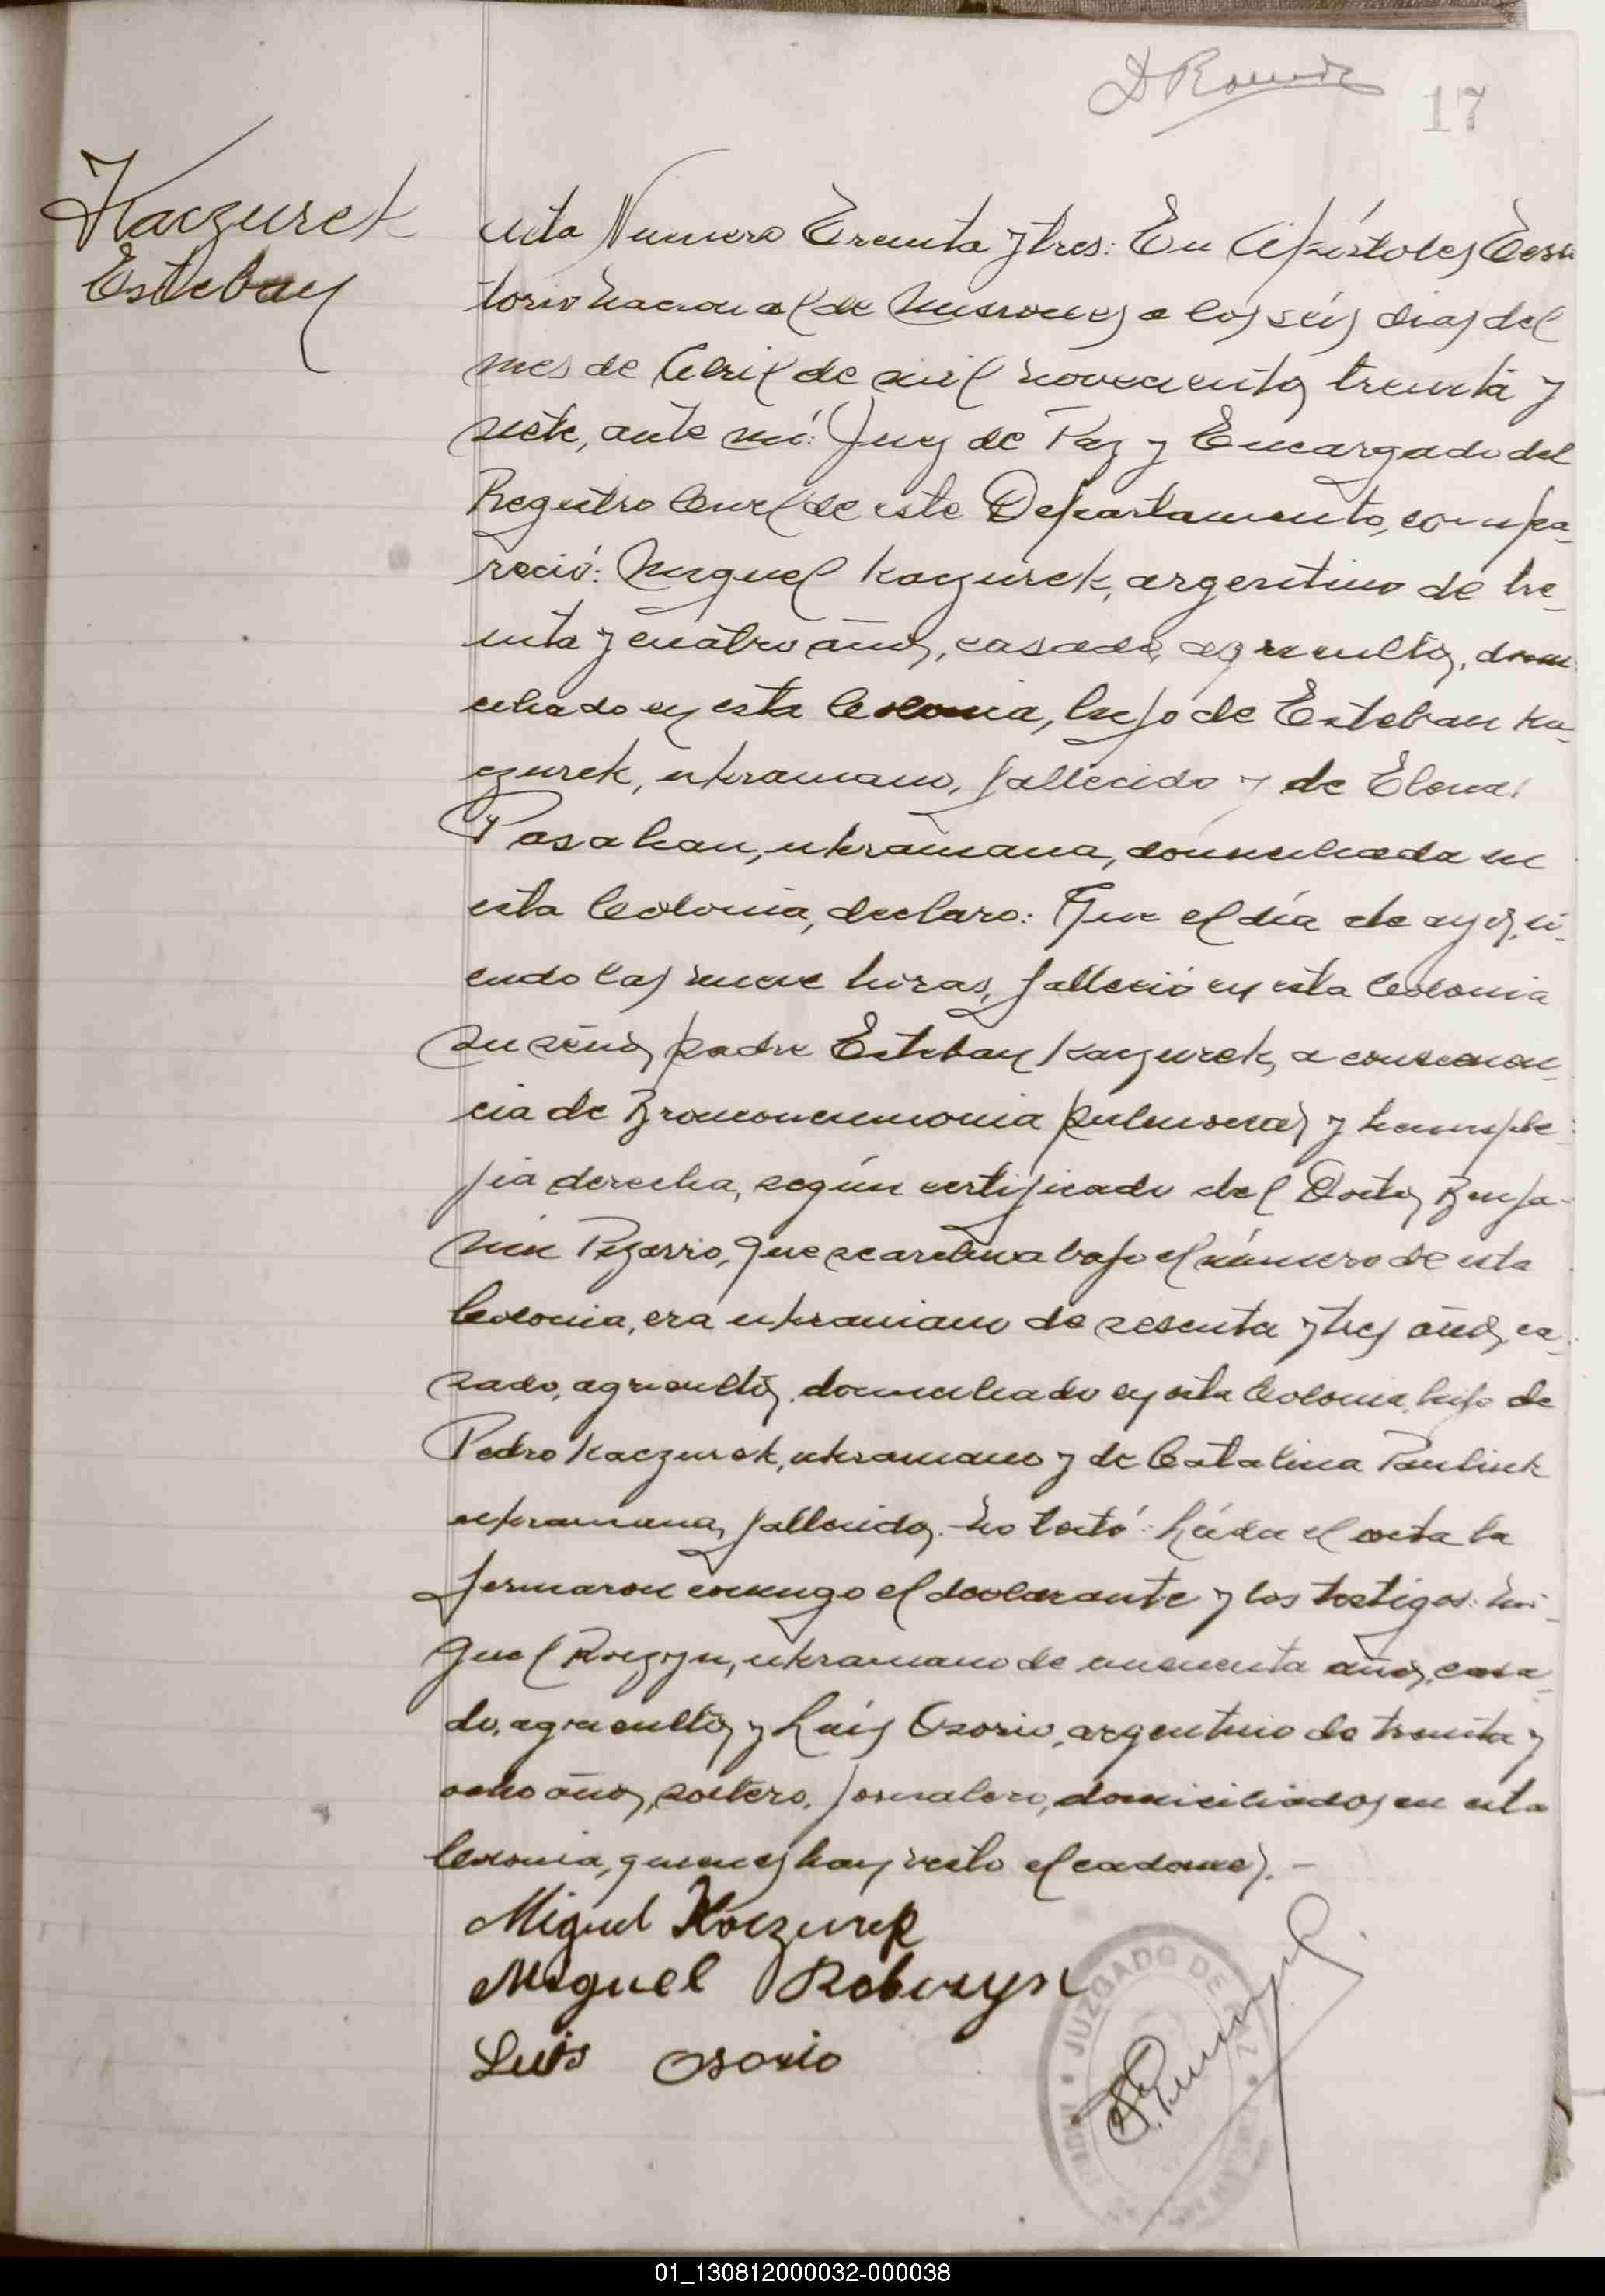 17
Kaczurek
Esteban
Acta Numero Treinta y tres: En Apóstoles Terri
torio Nacional de Misiones a los seis dias del
mes de Abril de mil novecientos treinta y
siete, ante mi: Juez de Paz y Encargado del
Registro Civil de este Departamento, compa-
reció: Miguel Kaczurek, argentino de tre-
inta y cuatro años, casado, agricultor, domi
ciliado en esta Colonia, hijo de Esteban Ka-
czurek, ukraniano, fallecido y de Elena
Pasahan, ukraniana, domiciliada en
esta Colonia, declaro: Que el día de ayer, si-
endo las nueve horas, falleció en esta Colonia
su señor padre Esteban Kaczurek, a consecuen-
cia de Bronconeumonia pulmonar y hemiple-
jia derecha, según certificado del Doctor Benja-
min Pizarro, que se archiva bajo el número de esta
Colonia, era ukraniano de sesenta y tres años, ca-
sado, agricultor, domiciliado en esta Colonia, hijo de
Pedro Kaczurek, ukraniano y de Catalina Pauliuk
ukraniana, fallecidos. No testó. Leída el acta la
firmaron conmigo el declarante y los testigos: Mi-
guel, ukraniano de cincuenta años, casa-
do, agricultor y Luis Osorio, argentino de treinta y
ocho años, soltero, jornalero, domiciliados en esta
Colonia, quienes han visto el cadaver. -
Miguel Kaczurek
Miguel
Luis Osorio
JUZGADO DE PAZ
01_130812000032-000038